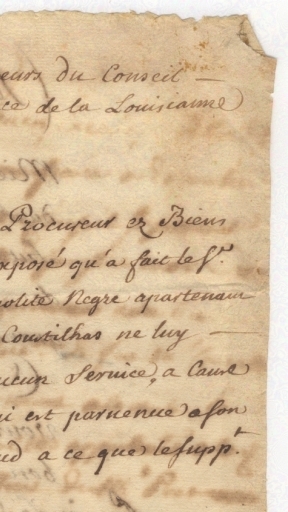 eurs du Conseil —
ce de la Louisianne
Procureur ez Biens
xposé qu'a fait le Sr.
polite Negre apartenant
Coustilhas ne luy —
ucun service, a Cause
ui est parvenue a son
ud a ce que le supp.t